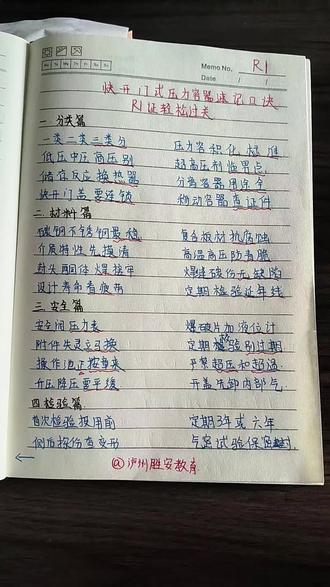 Memo No. R1
Mo Tu We Th Fr Sa Su
Date / /
快开门式压力容器速记口诀
R1证轻松过关
一 分类篇
一类二类三类分 压力容积化标准
低压中压高压别 超高压到临界点
储存反应换热器 分离容器用途全
快开门盖要连锁 移动容器查证件
二 材料篇
碳钢不锈钢最稳 复合板材抗腐蚀
介质特性先摸清 高温高压防着脆
封头画体焊接牢 焊缝探伤无缺陷
设计寿命看疲劳 定期检验延年线
三 安全篇
安全阀压力表 爆破片加液位计
附件失灵立马换 定期校验别过期
操作池正按章来 严禁超压和超温
升压降压要平缓 开盖先卸内部气
四 检验篇
首次检验投用前 定期3年或六年
侧后探伤查变形 气密试验保密封
@泸州胜安教育